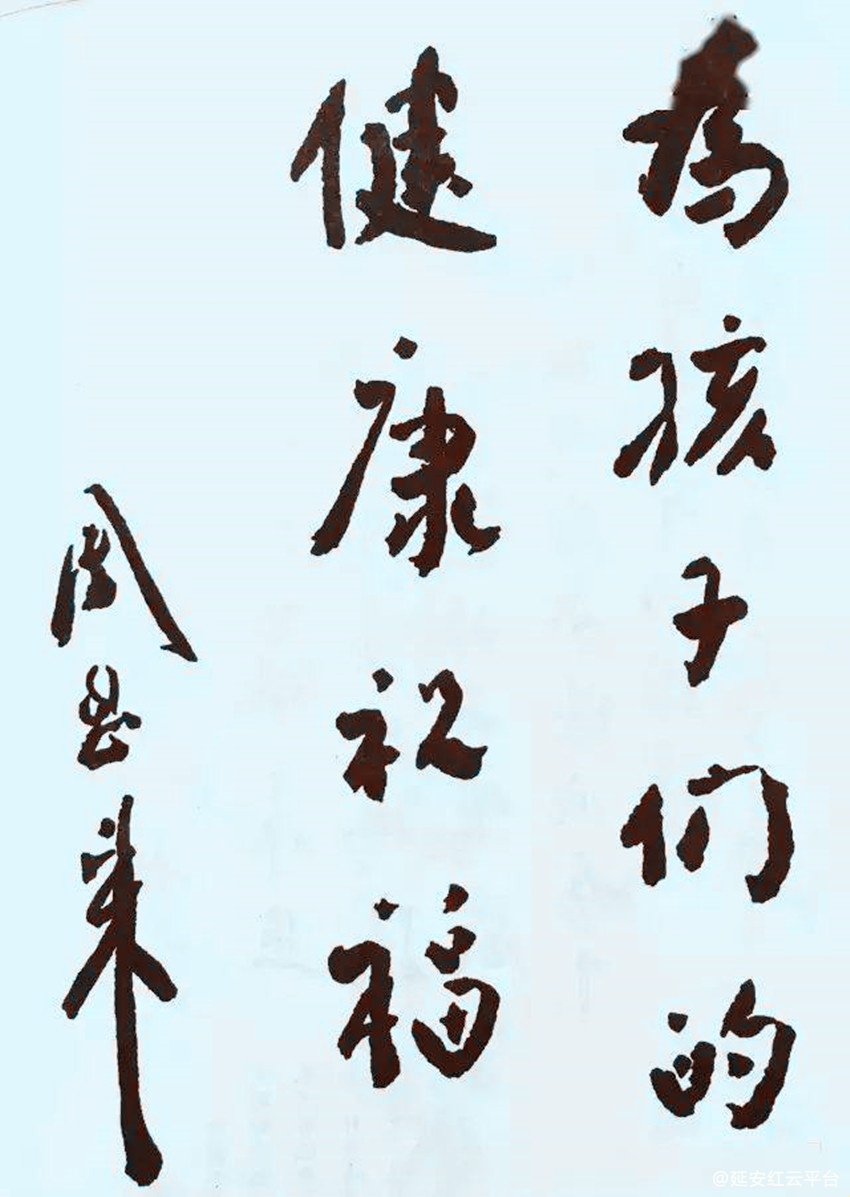 為孩子们的
健康祝福
周恩来
@延安红云平台